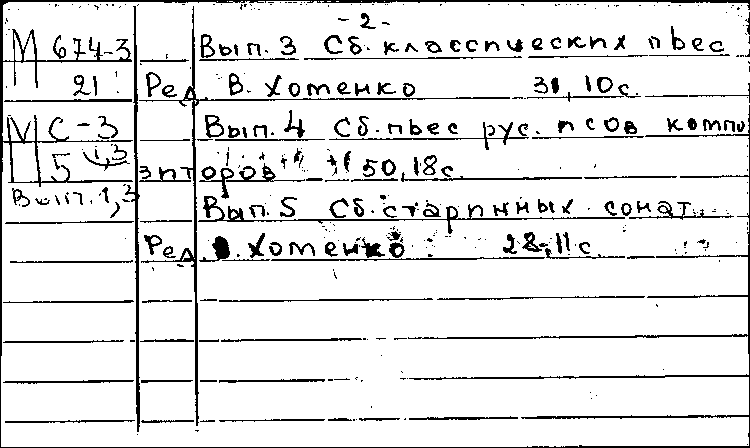 - 2 -
М 674-3 Вып. 3 Сб. классических пьес
21 Ред. В. Хоменко 31, 10с.
М С-3 Вып. 4 Сб. пьес рус. п сов компо
5 1,3 зиторов 50, 18с.
Вып. 1,3 Вып. 5 Сб. старинных сонат.
Ред. В. Хоменко 28, 11с.